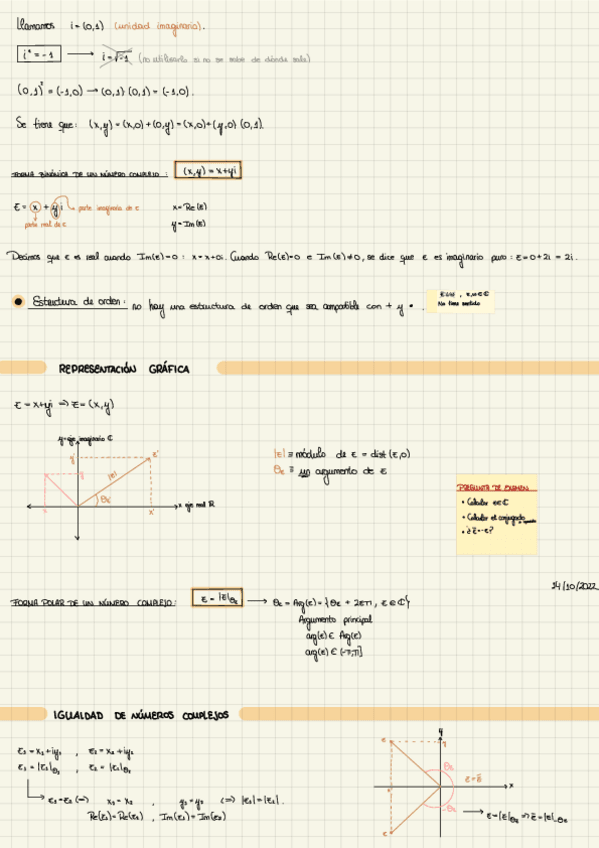 Llamamos i = (0,1) (unidad imaginaria).
i² = -1 → i = √-1 (no utilizarla si no se sabe de dónde sale)
(0,1)² = (-1,0) → (0,1) (0,1) = (-1,0).
Se tiene que: (x,y) = (x,0) + (0,y) = (x,0) + (y,0) (0,1).
FORMA BINÓMICA DE UN NÚMERO COMPLEJO: (x,y) = x+yi
z = x + yi parte imaginaria de z x = Re(z)
parte real de z y = Im(z)
Decimos que z es real cuando Im(z)=0 : x = x+0i. Cuando Re(z)=0 e Im(z)≠0, se dice que z es imaginario puro : z = 0+2i = 2i.
Estructura de orden: no hay una estructura de orden que sea compatible con + y •.
No tiene sentido
REPRESENTACIÓN GRÁFICA
z = x+yi ⇒ z = (x,y)
y=eje imaginario C
y' z'
|z|
θz
x'
x eje real R
|z| ≡ módulo de z = dist(z,0)
θz ≡ un argumento de z
PREGUNTA DE EXAMEN
• Calcular
• Calcular el conjugado
24/10/2022
FORMA POLAR DE UN NÚMERO COMPLEJO: z = |z|θz → θz = Arg(z) = {θz + 2
Argumento principal
arg(z) ∈ Arg(z)
arg(z) ∈ (-π,π]
IGUALDAD DE NÚMEROS COMPLEJOS
z₁ = x₁+iy₁ , z₂ = x₂+iy₂
z₁ = |z₁|θz , z₂ = |z₂|θz
z₁=z₂ (⇒) x₁ = x₂ , y₁ = y₂ (⇒) |z₁| = |z₂|.
Re(z₁) = Re(z₂) , Im(z₁) = Im(z₂)
y
z
θz
x
θz
z = |z|θz ⇒ z̄ = |z|-θz